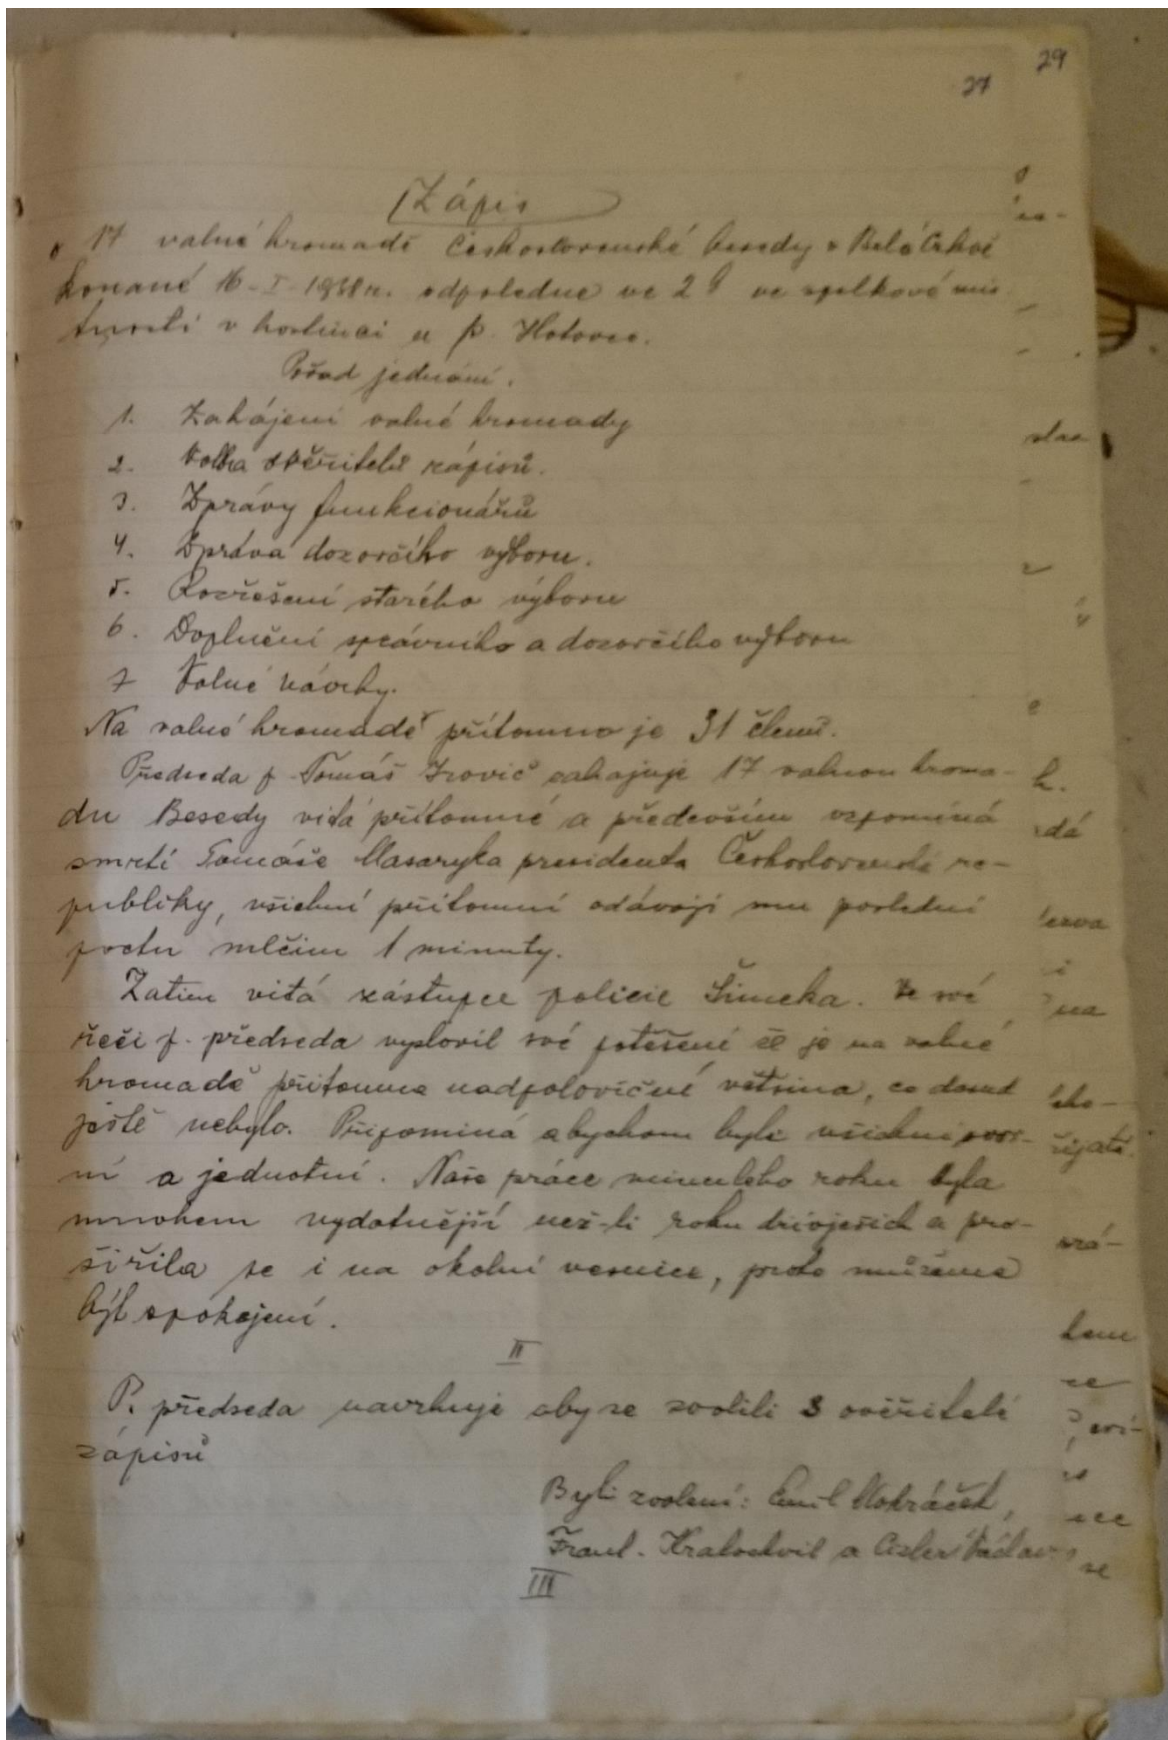 29
27
Zápis
o 17 valné hromadě Československé besedy v Belé Crkvi
konané 16-I-1938 r. odpoledne ve 2 ve spolkové mís
tnosti v hostinci u p.
Pořad jednání.
1. Zahájení valné hromady
2. Volba ověřitelů zápisů.
3. Zprávy funkcionářů
4. Zpráva dozorčího výboru.
5. Rozřešení starého výboru
6. Doplnění správního a dozorčího výboru
7 Volné návrhy.
Na valné hromadě přítomno je 31 členů.
Předseda p. Tomáš Irovič zahajuje 17 valnou hroma-
du Besedy vitá přítomné a především vzpomíná
smrti Tomáše Masaryka presidenta Československé re-
publiky, všichni přítomní odávají mu poslední
poctu mlčím 1 minuty.
Zatim vitá zástupce policie Šimeka. Ve své
řeči p. předseda vyslovil své potěšení že je na valné
hromadě přitomna nadpolovičné většina, co dosud
ještě nebylo. Připominá abychom byli všichni svor-
ní a jednotní. Naše práce minulého roku byla
mnohem vydatnější než-li roku dřívějsich a pro-
šiřila se i na okolní vesnice, proto můžeme
být spokojení.
II
P. předseda navrhuje aby se zvolili 3 ověřitelé
zápisů
Byli zvolení: Emil Mokráček,
Frant. Kratochvil a Cizler Václav
III